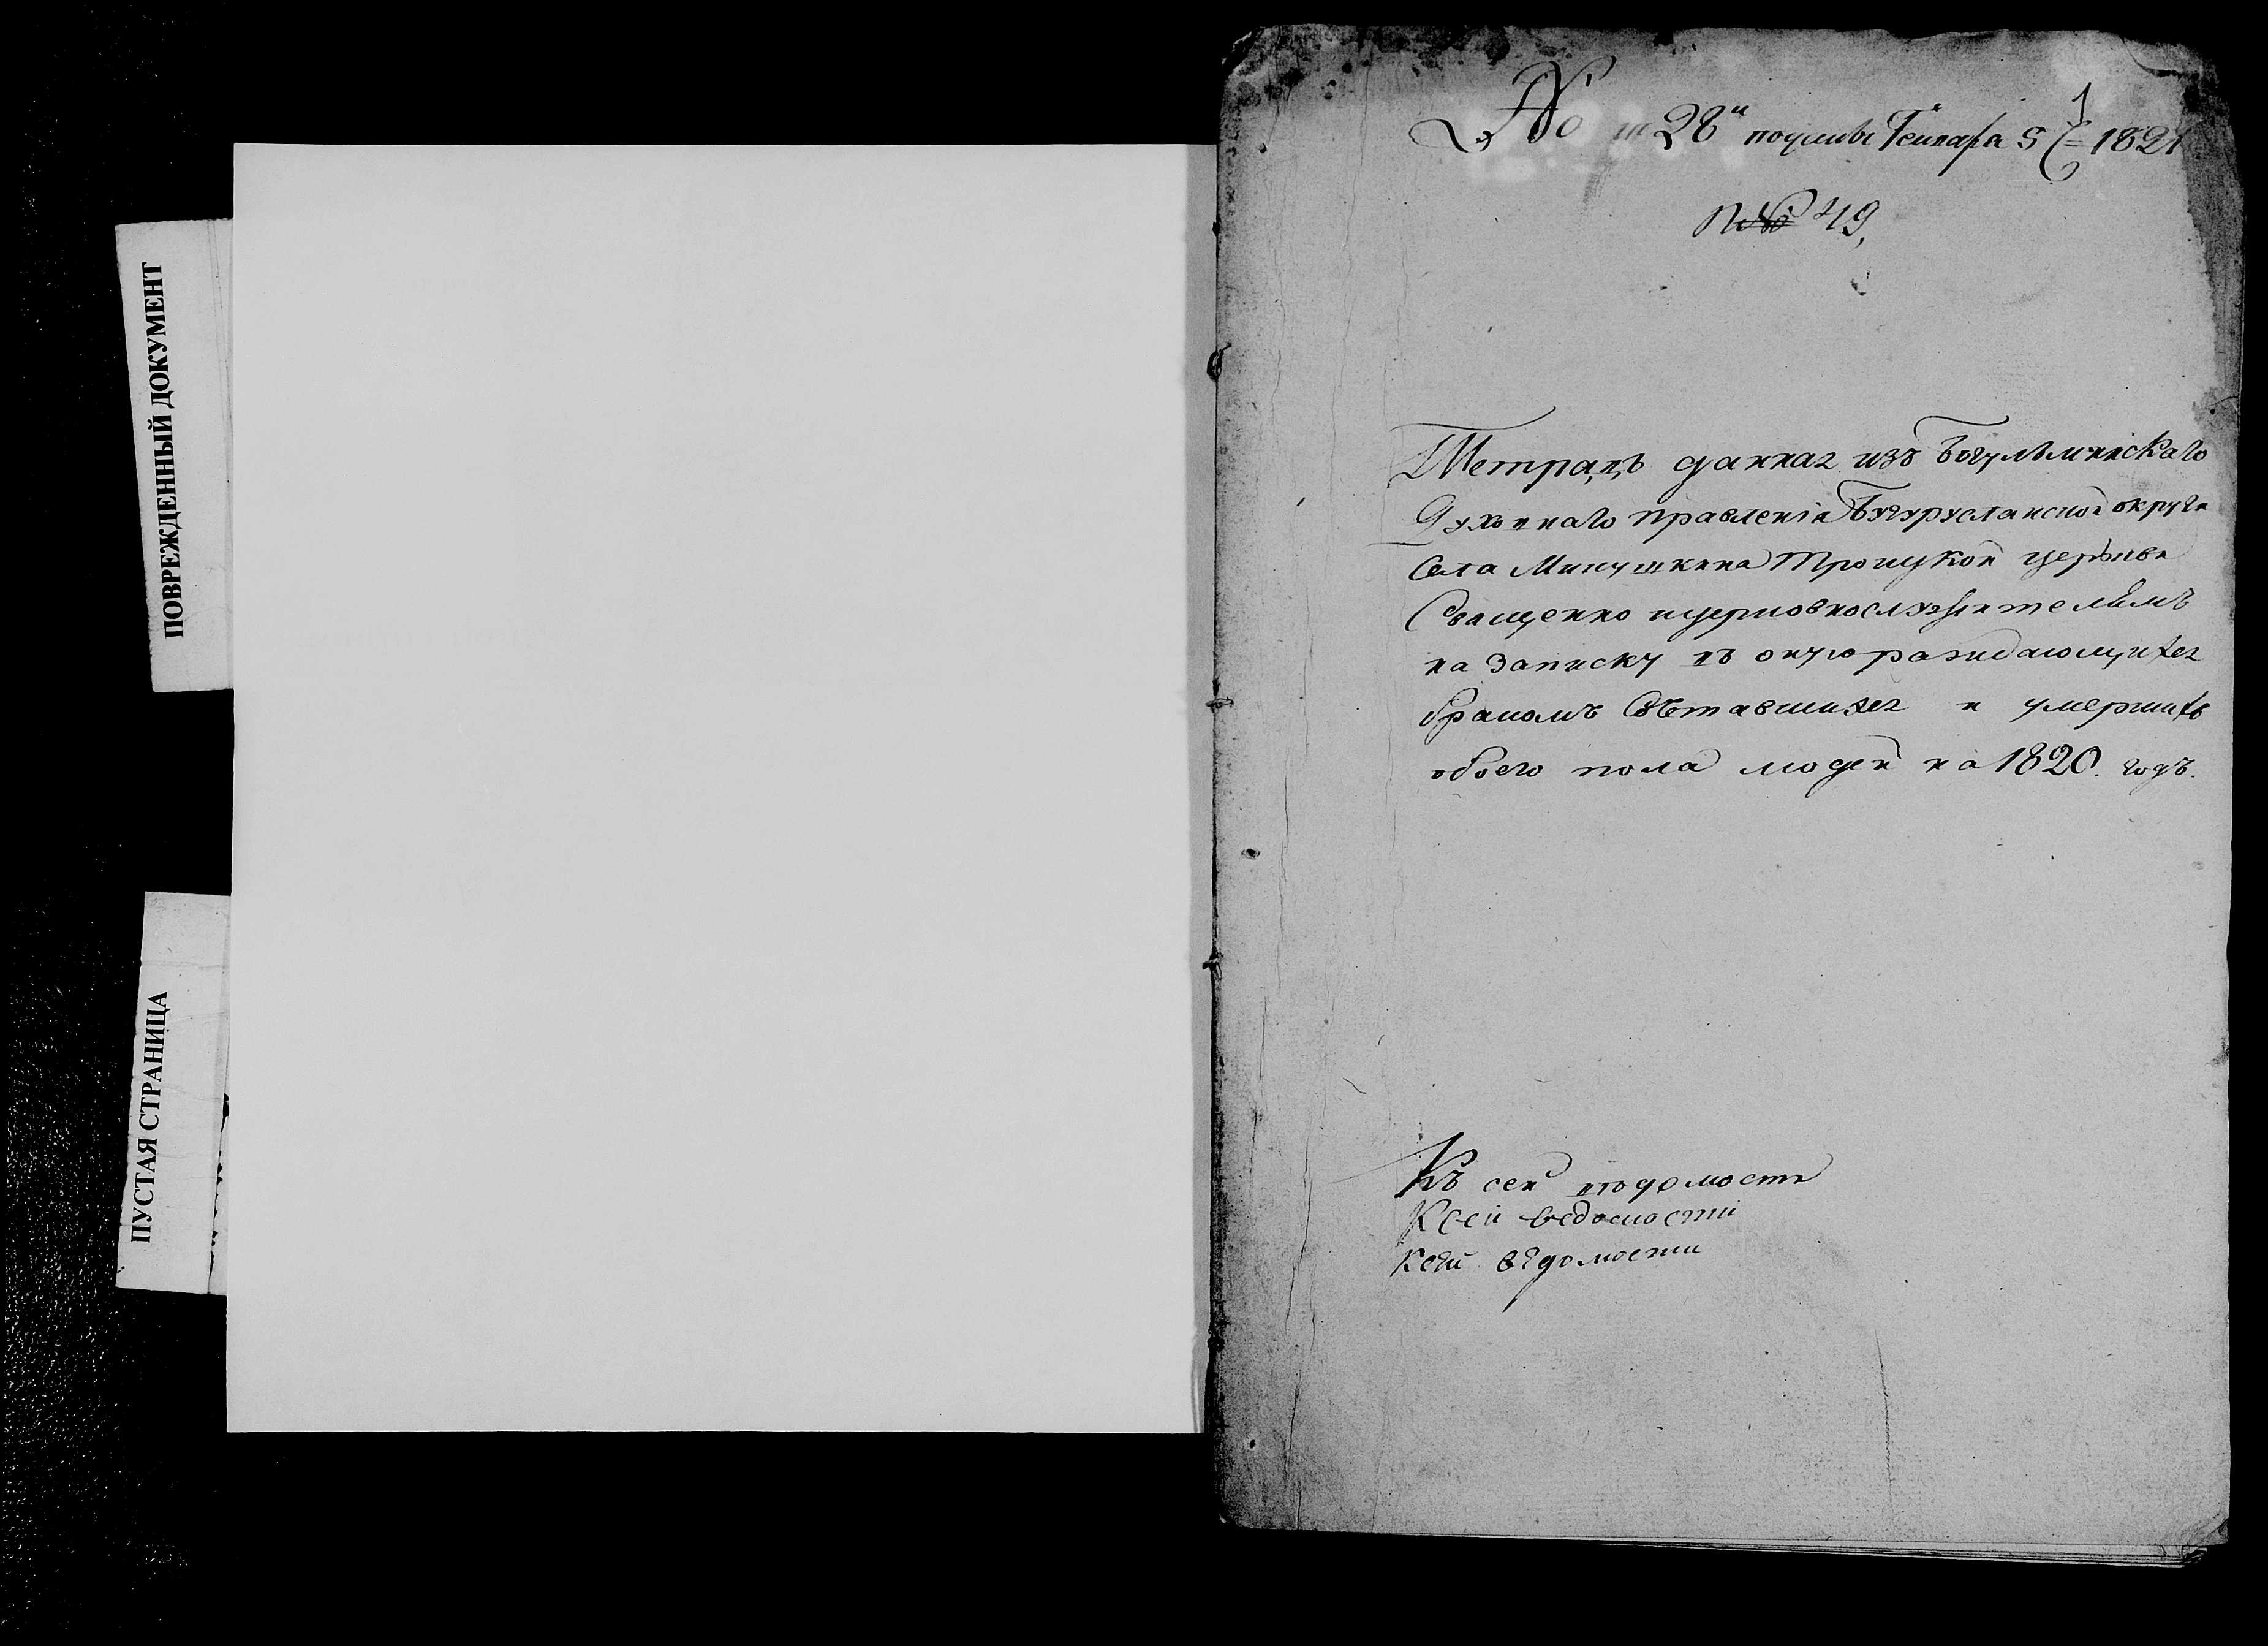 ПОВРЕЖДЕННЫЙ ДОКУМЕНТ
ПУСТАЯ СТРАНИЦА
№ 28й Генваря 5 1821
1
№ 49,
Тетрадь данная изъ Бугульминскаго
Духовнаго правленія Бугурусланской округи
Села Микушкина Троицкой церькви
Священно ицерковнослужителямъ
на записку въ оную раждающихся
бракомъ Сѣтавшихся и умершихъ
обоего пола людей на 1820. годъ.
Къ сей вѣдомости
К сеи ведомости
Ксей вѣдомости